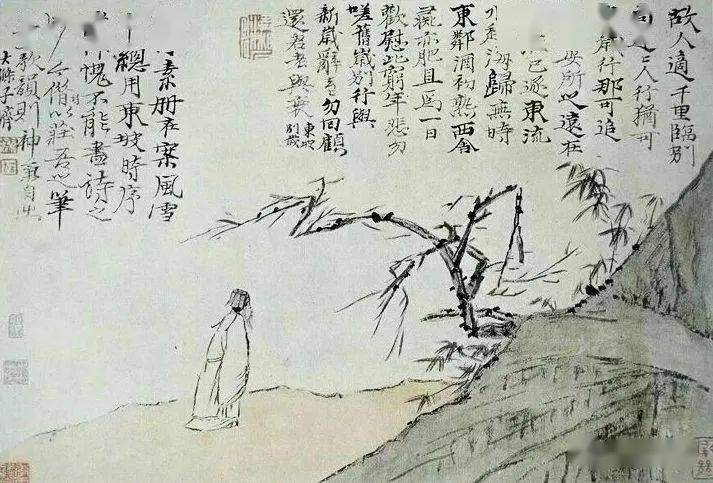 故人適千里臨別
人行猶可
歲行那可追
安所之遠在
已逐東流
海歸無時
東鄰酒初熟西舍
彘亦肥且為一日
歡慰此窮年悲勿
嗟舊歲別行與
新歲辭去去勿回顧
還君老與衰 東坡別歲
素冊在案風雪
總用東坡時序
愧不能盡詩之
借以莊吾之筆
韻則神氣自出
大滌子濟